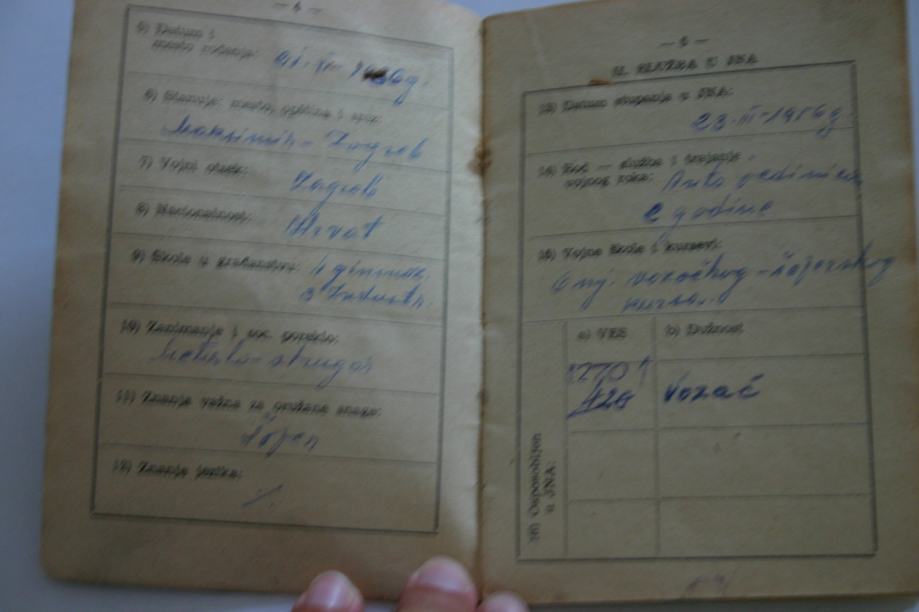 — 4 —
5) Datum i
mesto rođenja:
6) Stanuje: mesto, opština i srez:
Maksimir - Zagreb
7) Vojni otsek: Zagreb
8) Nacionalnost: Hrvat
9) Škole u građanstvu: 4 gimnaz.
3 Industr.
10) Zanimanje i soc. poreklo:
strugar
11) Znanje važno za oružane snage:
Šofer
12) Znanje jezika:
— 5 —
II. SLUŽBA U JNA
13) Datum stupanja u JNA:
23-III-1956 g.
14) Rod — službe i trajanje
vojnog roka: Auto jedinica
2 godine
15) Vojne škole i kursevi:
6 mj. vozačkog - šoferskog
kursa.
16) Osposobljen
u JNA:
a) VES b) Dužnost
12701
426 Vozač